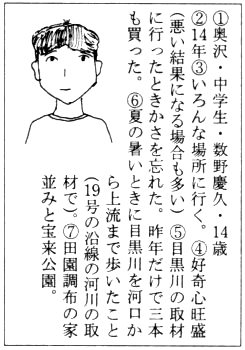 ①奥沢・中学生・数野慶久・14歳
②14年③いろんな場所に行く。④好奇心旺盛
(悪い結果になる場合も多い)⑤目黒川の取材
に行ったときかさを忘れた。昨年だけで三本
も買った。⑥夏の暑いときに目黒川を河口か
ら上流まで歩いたこと
(19号の沿線の河川の取
材で)。⑦田園調布の家
並みと宝来公園。